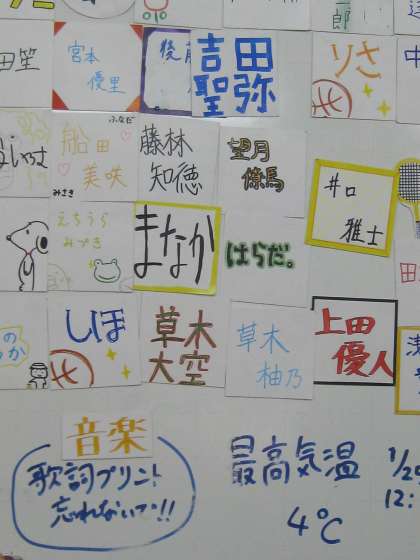 郎
田笙
宮本
優里
後
吉田
聖弥
りさ
中
ふなだ
船田
美咲
みさき
藤林
知徳
望月
僚馬
井口
雅士
えちうら
みづき
まなか
はらだ。
田
しほ
草木
大空
草木
柚乃
上田
優人
の
か
音楽
歌詞プリン!
忘れないでン!!
最高気温
4℃
1/2
12: